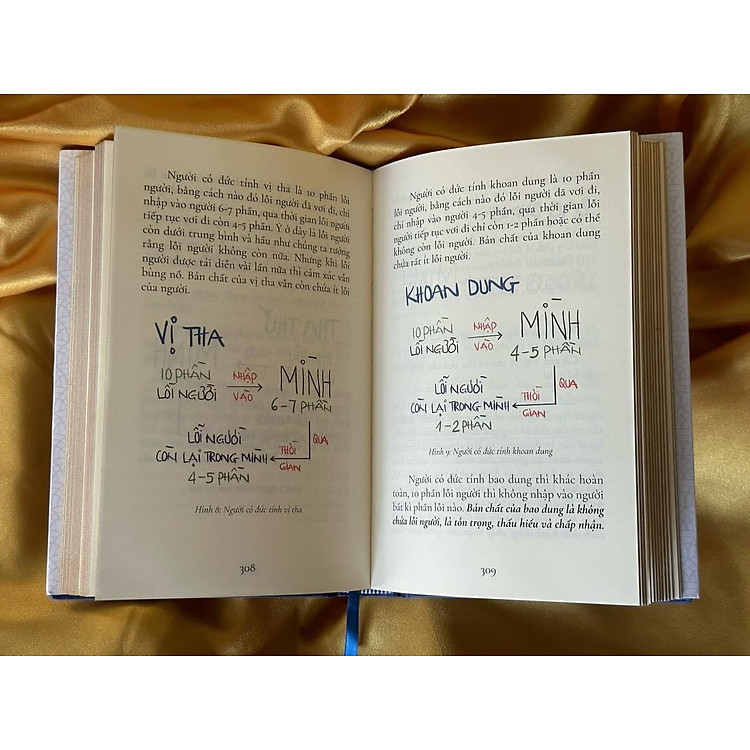 Người có đức tính vị tha là 10 phần lỗi
người, bằng cách nào đó lỗi người đã vơi đi, chỉ
nhập vào người 6-7 phần, qua thời gian lỗi người
tiếp tục vơi đi còn 4-5 phần. Ý ở đây là lỗi người
còn dưới trung bình và hầu như chúng ta tưởng
rằng lỗi người không còn nữa. Nhưng khi lỗi
người được tái diễn vài lần nữa thì cảm xúc vẫn
bùng nổ. Bản chất của vị tha vẫn còn chứa ít lỗi
của người.
VỊ THA
10 PHẦN
LỖI NGƯỜI
NHẬP
VÀO
MÌNH
6-7 PHẦN
QUA
THỜI
GIAN
LỖI NGƯỜI
CÒN LẠI TRONG MÌNH
4-5 PHẦN
Hình 8: Người có đức tính vị tha
308
Người có đức tính khoan dung là 10 phần
lỗi người, bằng cách nào đó lỗi người đã vơi đi,
chỉ nhập vào người 4-5 phần, qua thời gian lỗi
người tiếp tục vơi đi chỉ còn 1-2 phần hoặc có thể
không còn lỗi người. Bản chất của khoan dung
chứa rất ít lỗi người.
KHOAN DUNG
10 PHẦN
LỖI NGƯỜI
NHẬP
VÀO
MÌNH
4-5 PHẦN
QUA
THỜI
GIAN
LỖI NGƯỜI
CÒN LẠI TRONG MÌNH
1-2 PHẦN
Hình 9: Người có đức tính khoan dung
Người có đức tính bao dung thì khác hoàn
toàn, 10 phần lỗi người thì không nhập vào người
bất kì phần lỗi nào. Bản chất của bao dung là không
chứa lỗi người, là tôn trọng, thấu hiểu và chấp nhận.
309